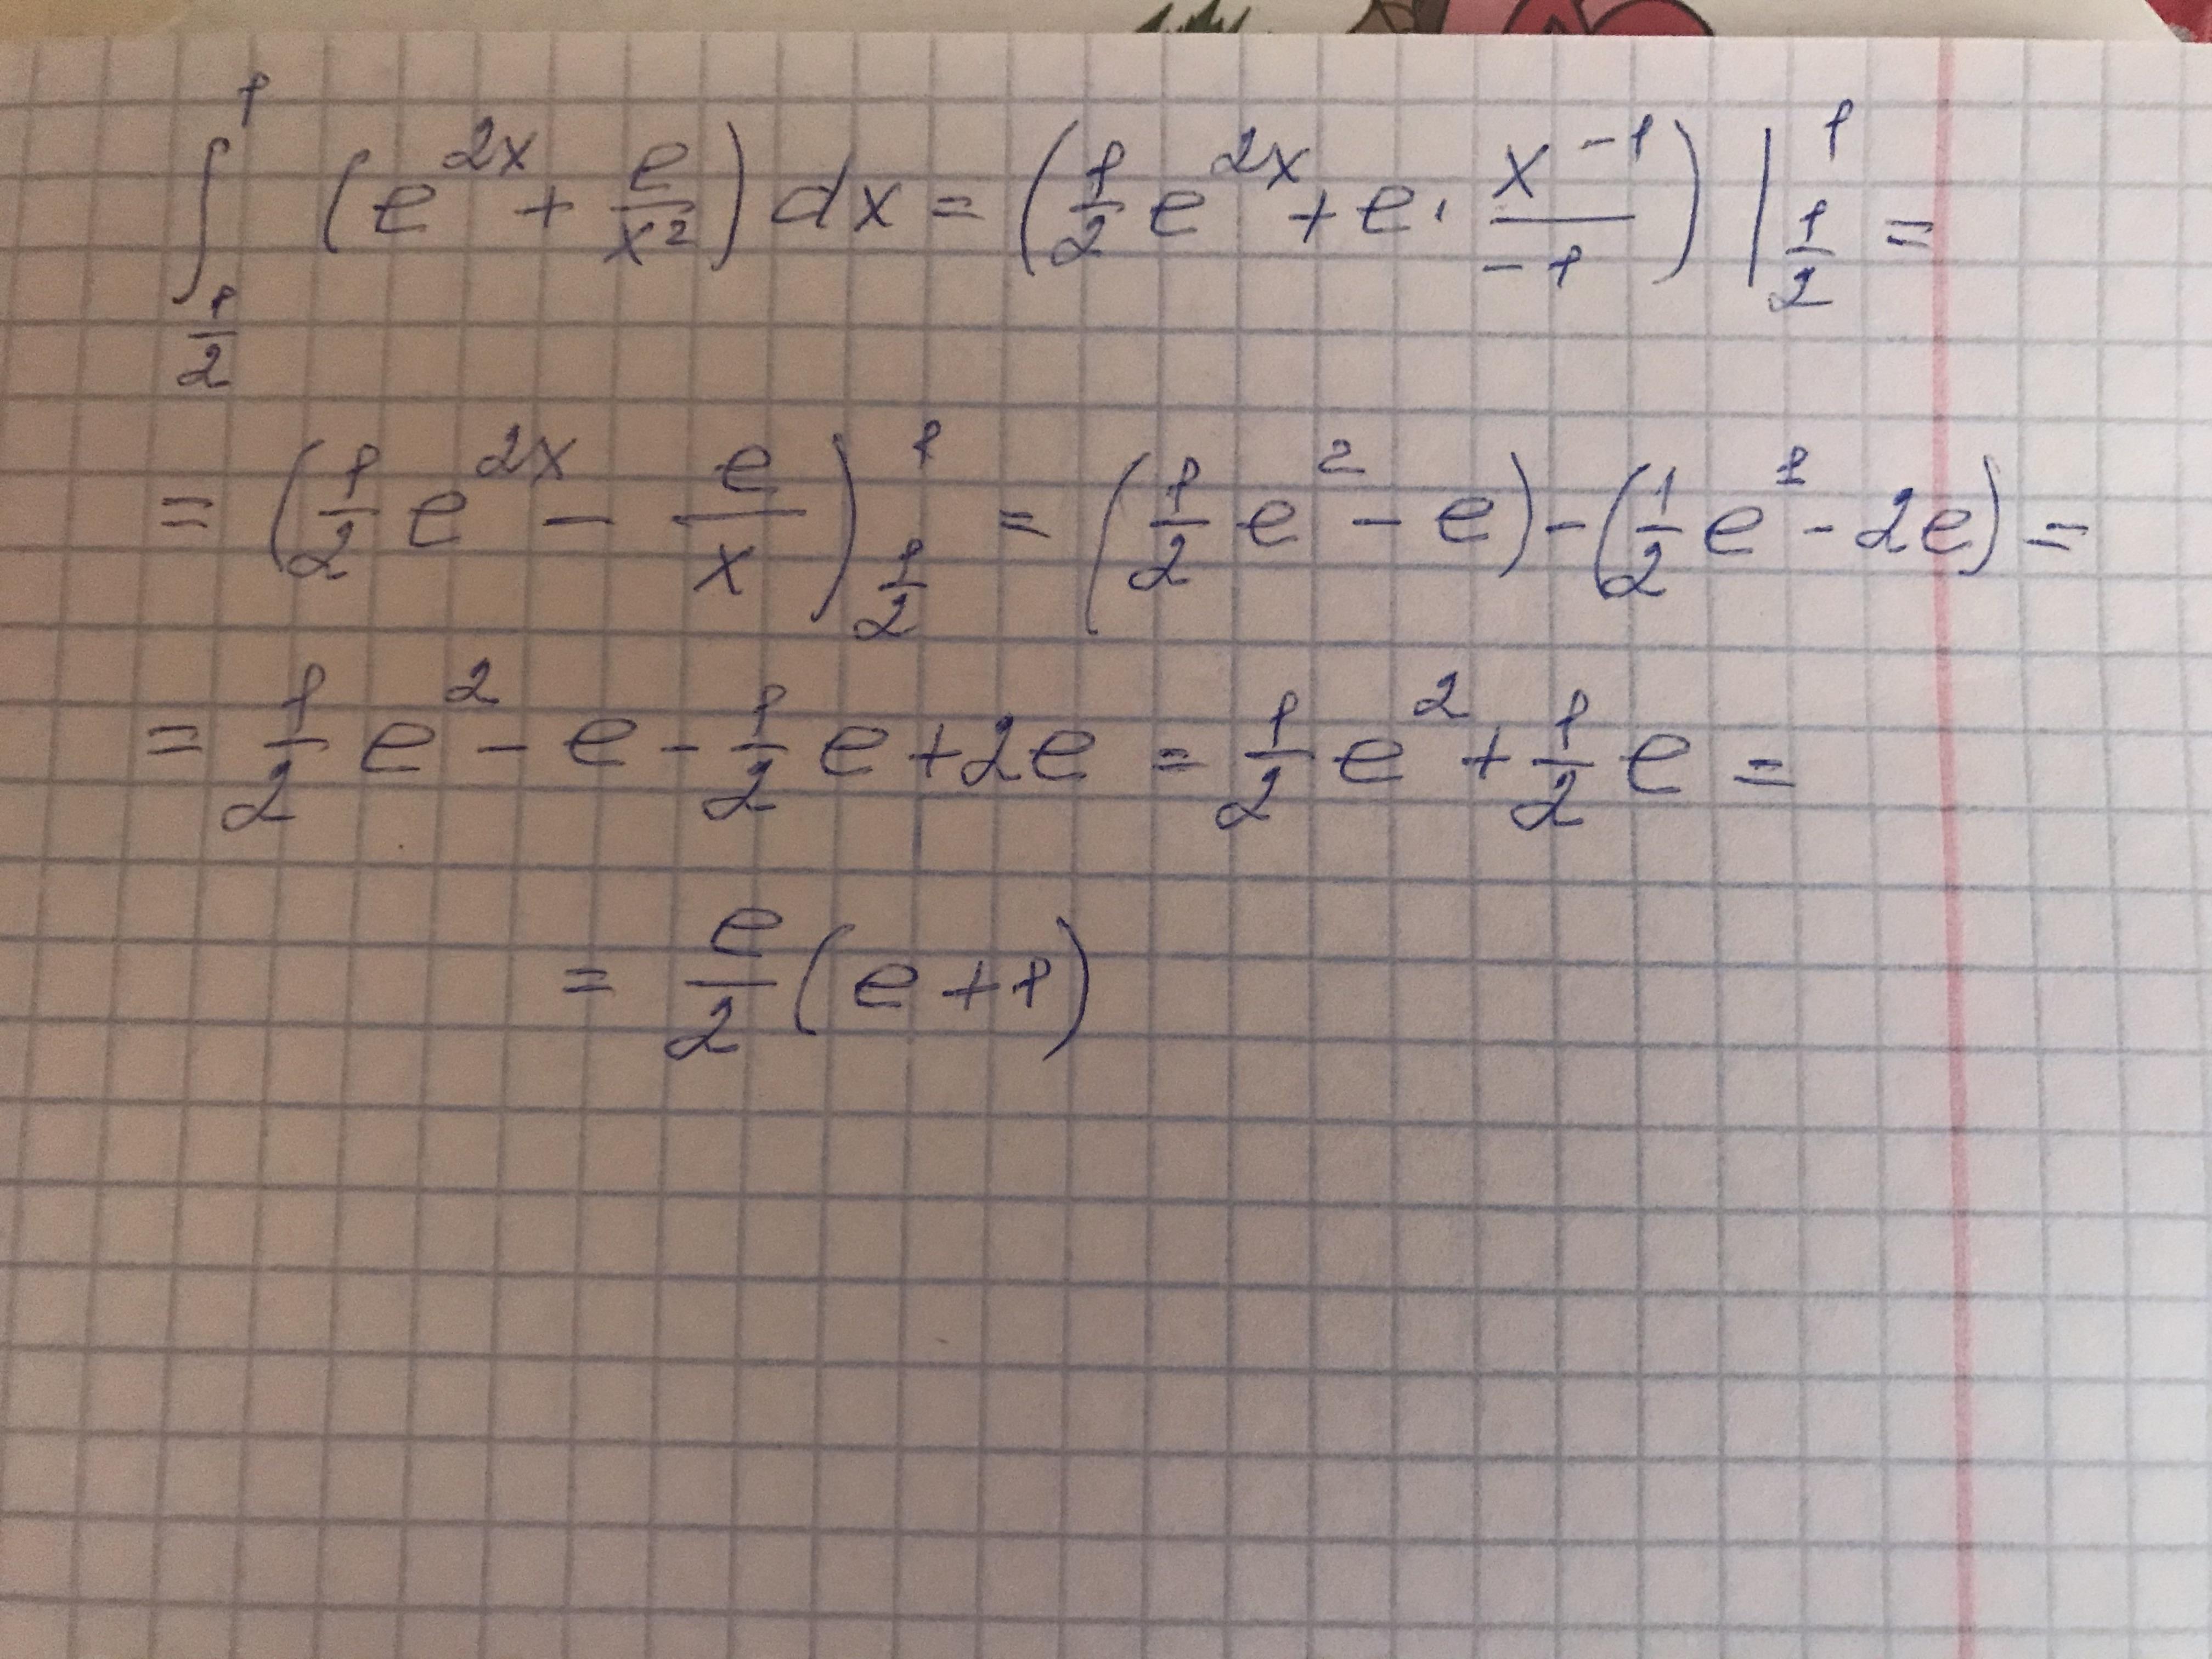 ∫_{1/2}^{1} (e^{2x} + e/x²) dx = (1/2 e^{2x} + e · x^{-1}/-1) |_{1/2}^{1} =
= (1/2 e^{2x} - e/x)_{1/2}^{1} = (1/2 e² - e) - (1/2 e¹ - 2e) =
= 1/2 e² - e - 1/2 e + 2e = 1/2 e² + 1/2 e =
= e/2 (e + 1)